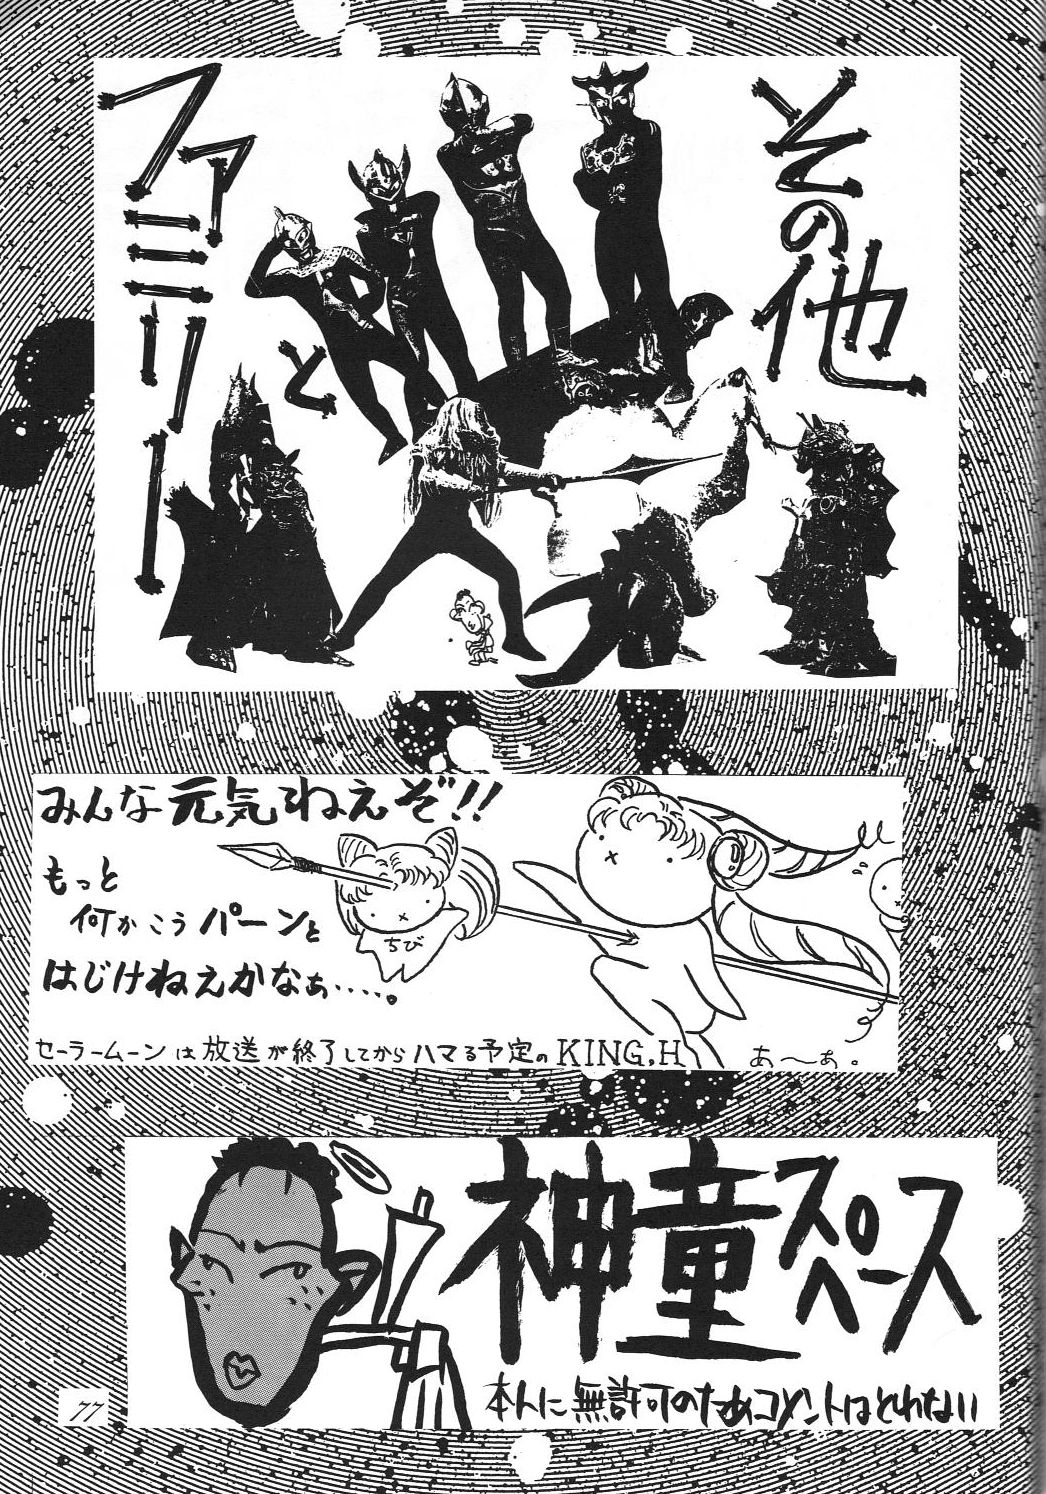 その他
ファミリーと
みんな元気でねえぞ!!
もっと
何かこうパーンと
はじけねえかなぁ‥‥。
ちび
セーラームーンは放送が終了してからハマる予定のKING,H
あ〜あ。
神童スペース
本人に無許可のためコメントはとれない
77